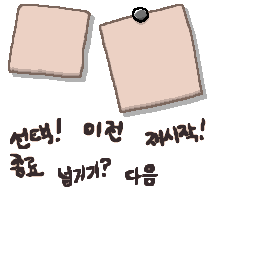 선택! 이전 재시작!
종료 넘기기? 다음